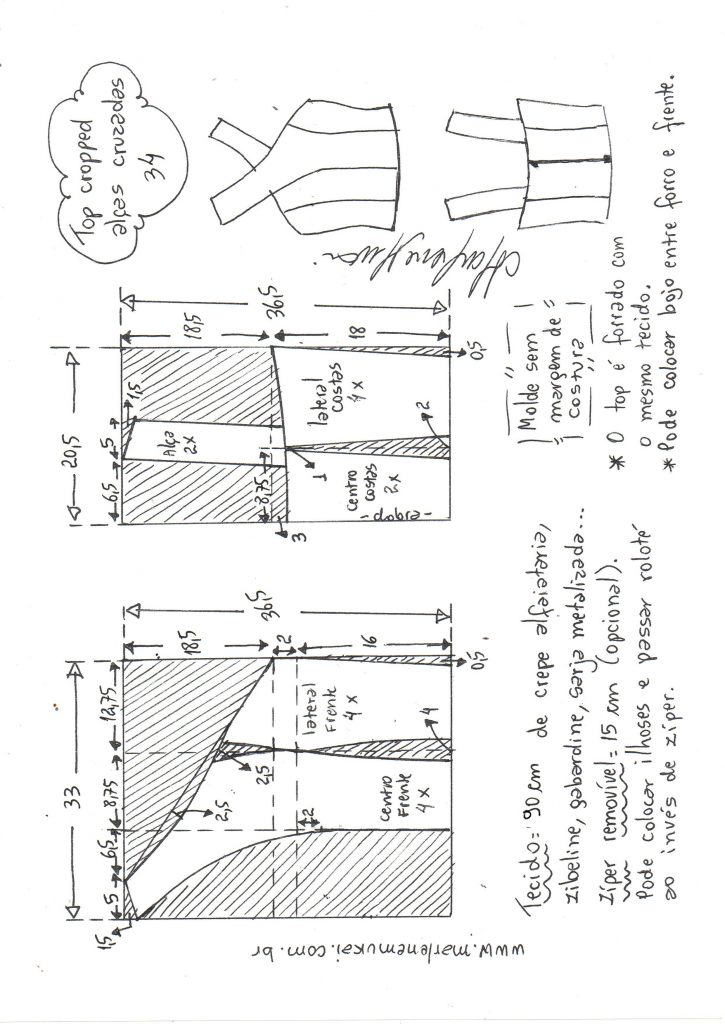 Top cropped
alças cruzadas
34
33
5
6,5
8,75
12,75
1,5
18,5
36,5
2
16
2,5
2,5
2
centro
Frente
4x
lateral
Frente
4x
4
0,5
20,5
6,5
5
1,5
Alça
2x
18,5
36,5
18
8,75
3
1
centro
costas
2x
-dobra-
lateral
costas
4x
2
0,5
Molde sem
margem de
costura
Tecido = 90 cm de crepe alfaiataria,
zibeline, gabardine, sarja metalizada...
Zíper removível = 15 cm (opcional).
Pode colocar ilhoses e passar roloté
ao invés de zíper.
* O top é forrado com
o mesmo tecido.
* Pode colocar bojo entre forro e frente.
www.marlenemukai.com.br